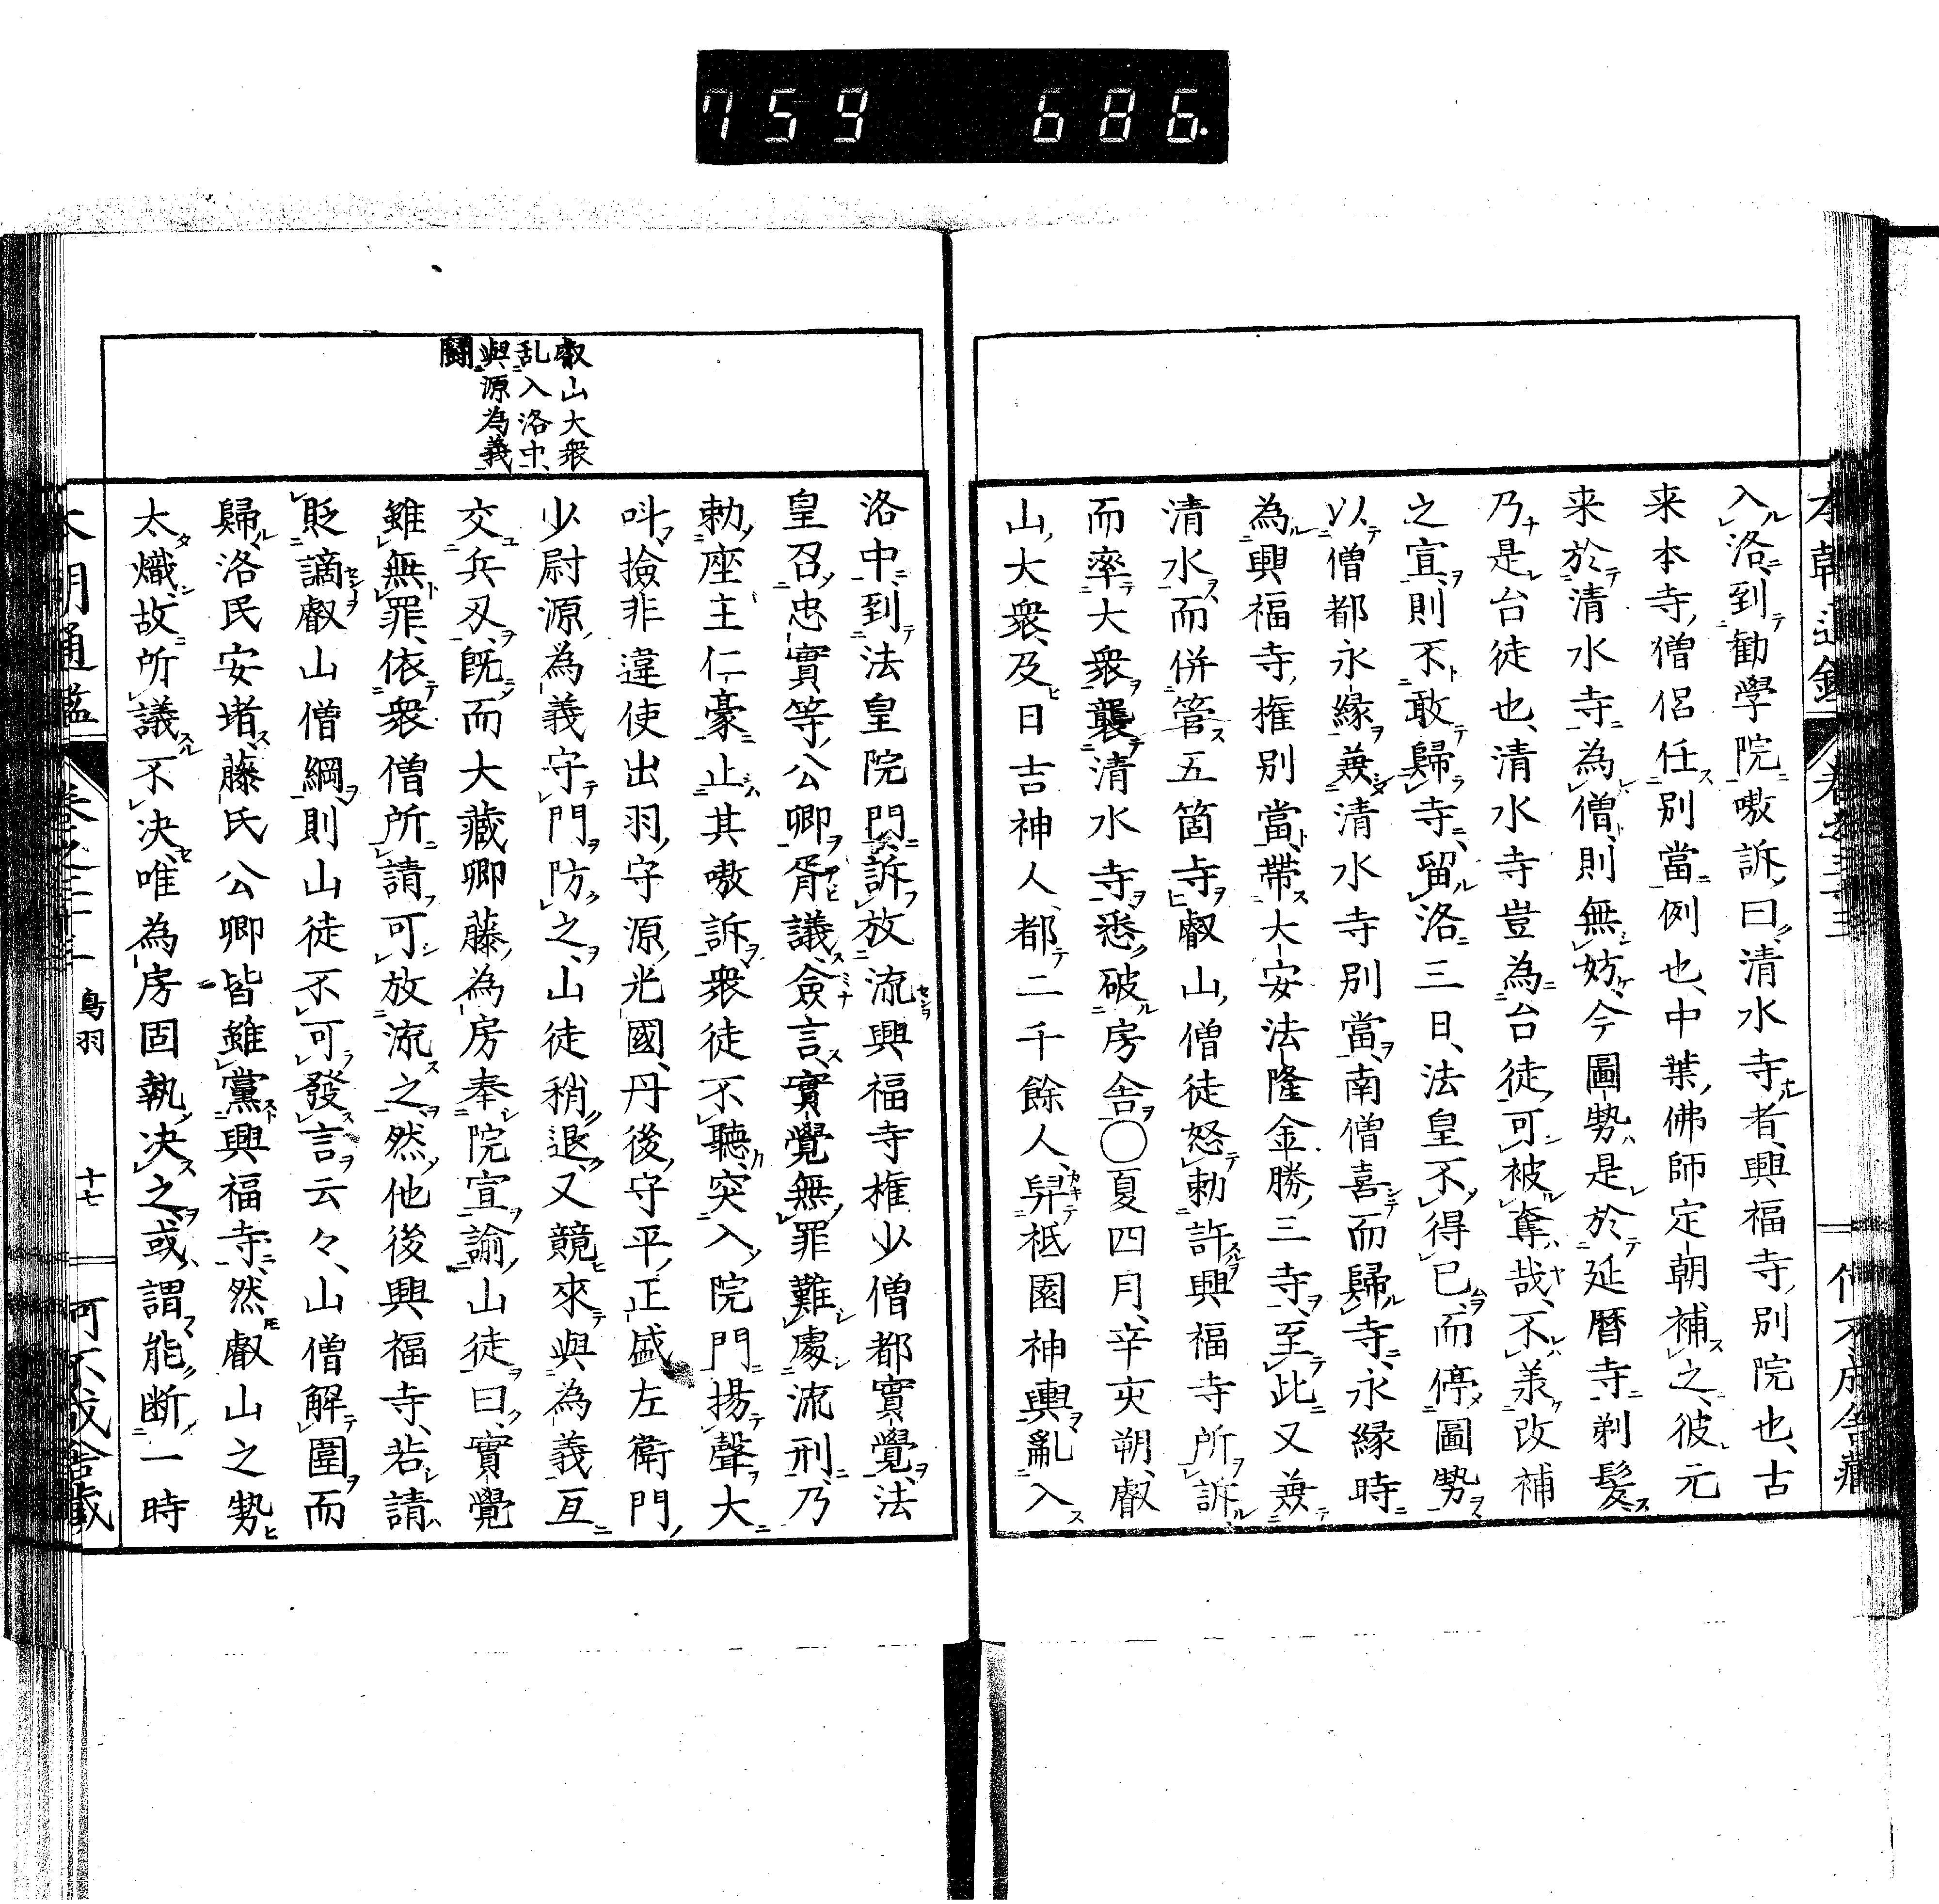 759 686.
入洛到勧學院嗷訴曰清水寺者興福寺別院也古
来本寺僧侶任別當例也中葉佛師定朝補之彼元
来於清水寺為僧則無妨今圖勢是於延暦寺剃髪
乃是台徒也清水寺豈為台徒可被奪哉不兼改補
之宣則不敢歸寺留洛三日法皇不得已而停圖勢
以僧都永縁兼清水寺別當南僧喜而歸寺永縁時
為興福寺権別當帶大安法隆金勝三寺至此又兼
清水而併管五箇寺叡山僧徒怒勅許興福寺所訴
而率大衆襲清水寺悉破房舎〇夏四月辛亥朔叡
山大衆及日吉神人都二千餘人舁祇園神輿亂入
叡山大衆
乱入洛中
與源為義
鬪
洛中到法皇院門訴放流興福寺権少僧都實覺法
皇召忠實等公卿胥議僉言實覺無罪難處流刑乃
勅座主仁豪止其嗷訴衆徒不聽突入院門揚聲大
呌撿非違使出羽守源光國丹後守平正盛左衛門
少尉源為義守門防之山徒稍退又競來與為義互
交兵刃既而大藏卿藤為房奉院宣諭山徒曰實覺
雖無罪依衆僧所請可放流之然他後興福寺若請
貶謫叡山僧綱則山徒不可發言云々山僧解圍而
歸洛民安堵藤氏公卿皆雖黨興福寺然叡山之勢
太熾故所議不决唯為房固執决之或謂能断一時
鳥羽
十七